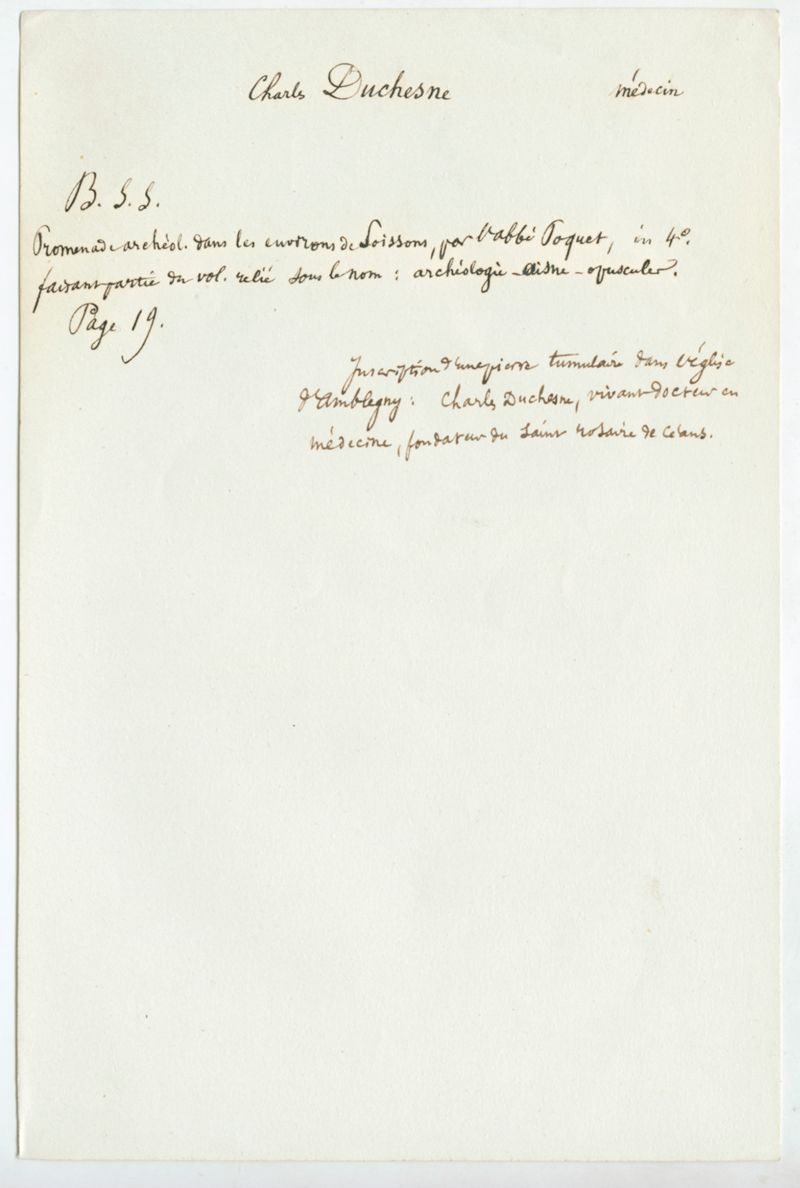 Charles Duchesne médecin
B. S. S.
Promenade archéol. dans les environs de Soissons, par l'abbé Poquet, in 4º.
faisant partie du vol. relié sous le nom : archéologie - aisne - opuscules.
Page 19.
Inscription d'une pierre tumulaire dans l'église
d'Ambleny : Charles Duchesne, vivant docteur en
médecine, fondateur du saint rosaire de céans.